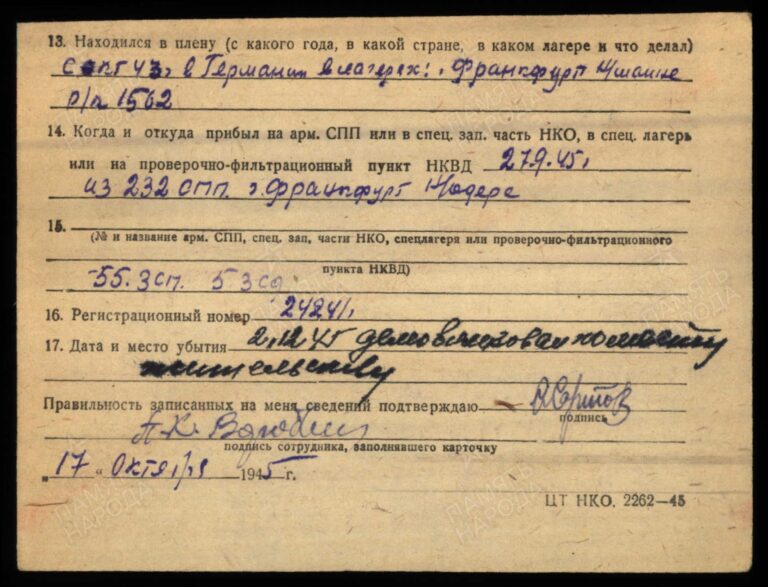 13. Находился в плену (с какого года, в какой стране, в каком лагере и что делал)
с окт 43 г в Германии в лагерях: г. Франкфурт Н/майне
р/л 1562
14. Когда и откуда прибыл на арм. СПП или в спец. зап. часть НКО, в спец. лагерь
или на проверочно-фильтрационный пункт НКВД 27.9.45г
из 232 СПП. г. Франкфурт Н/одере
15.
(№ и название арм. СПП, спец. зап. части НКО, спецлагеря или проверочно-фильтрационного
пункта НКВД)
55. Зсп. 5 Зсд.
16. Регистрационный номер 24241
17. Дата и место убытия 2.12.45 по месту
жительству
Правильность записанных на меня сведений подтверждаю
подпись
А.К.
подпись сотрудника, заполнявшего карточку
„17“ Октября 1945 г.
ЦТ НКО. 2262—45
ПАМЯТЬ НАРОДА